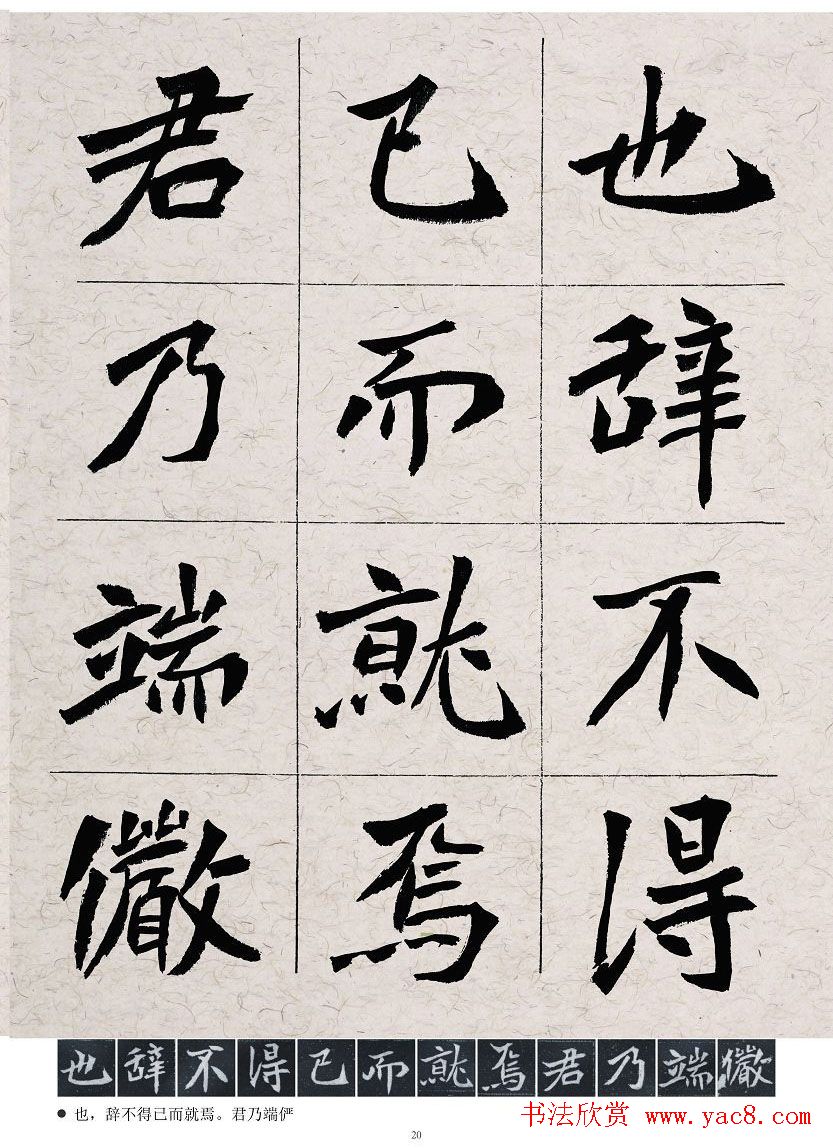 也辞不得
已而就焉
君乃端儼
也辞不得已而就焉君乃端儼
● 也，辞不得己而就焉。君乃端俨
书法欣赏 www.yac8.com
20